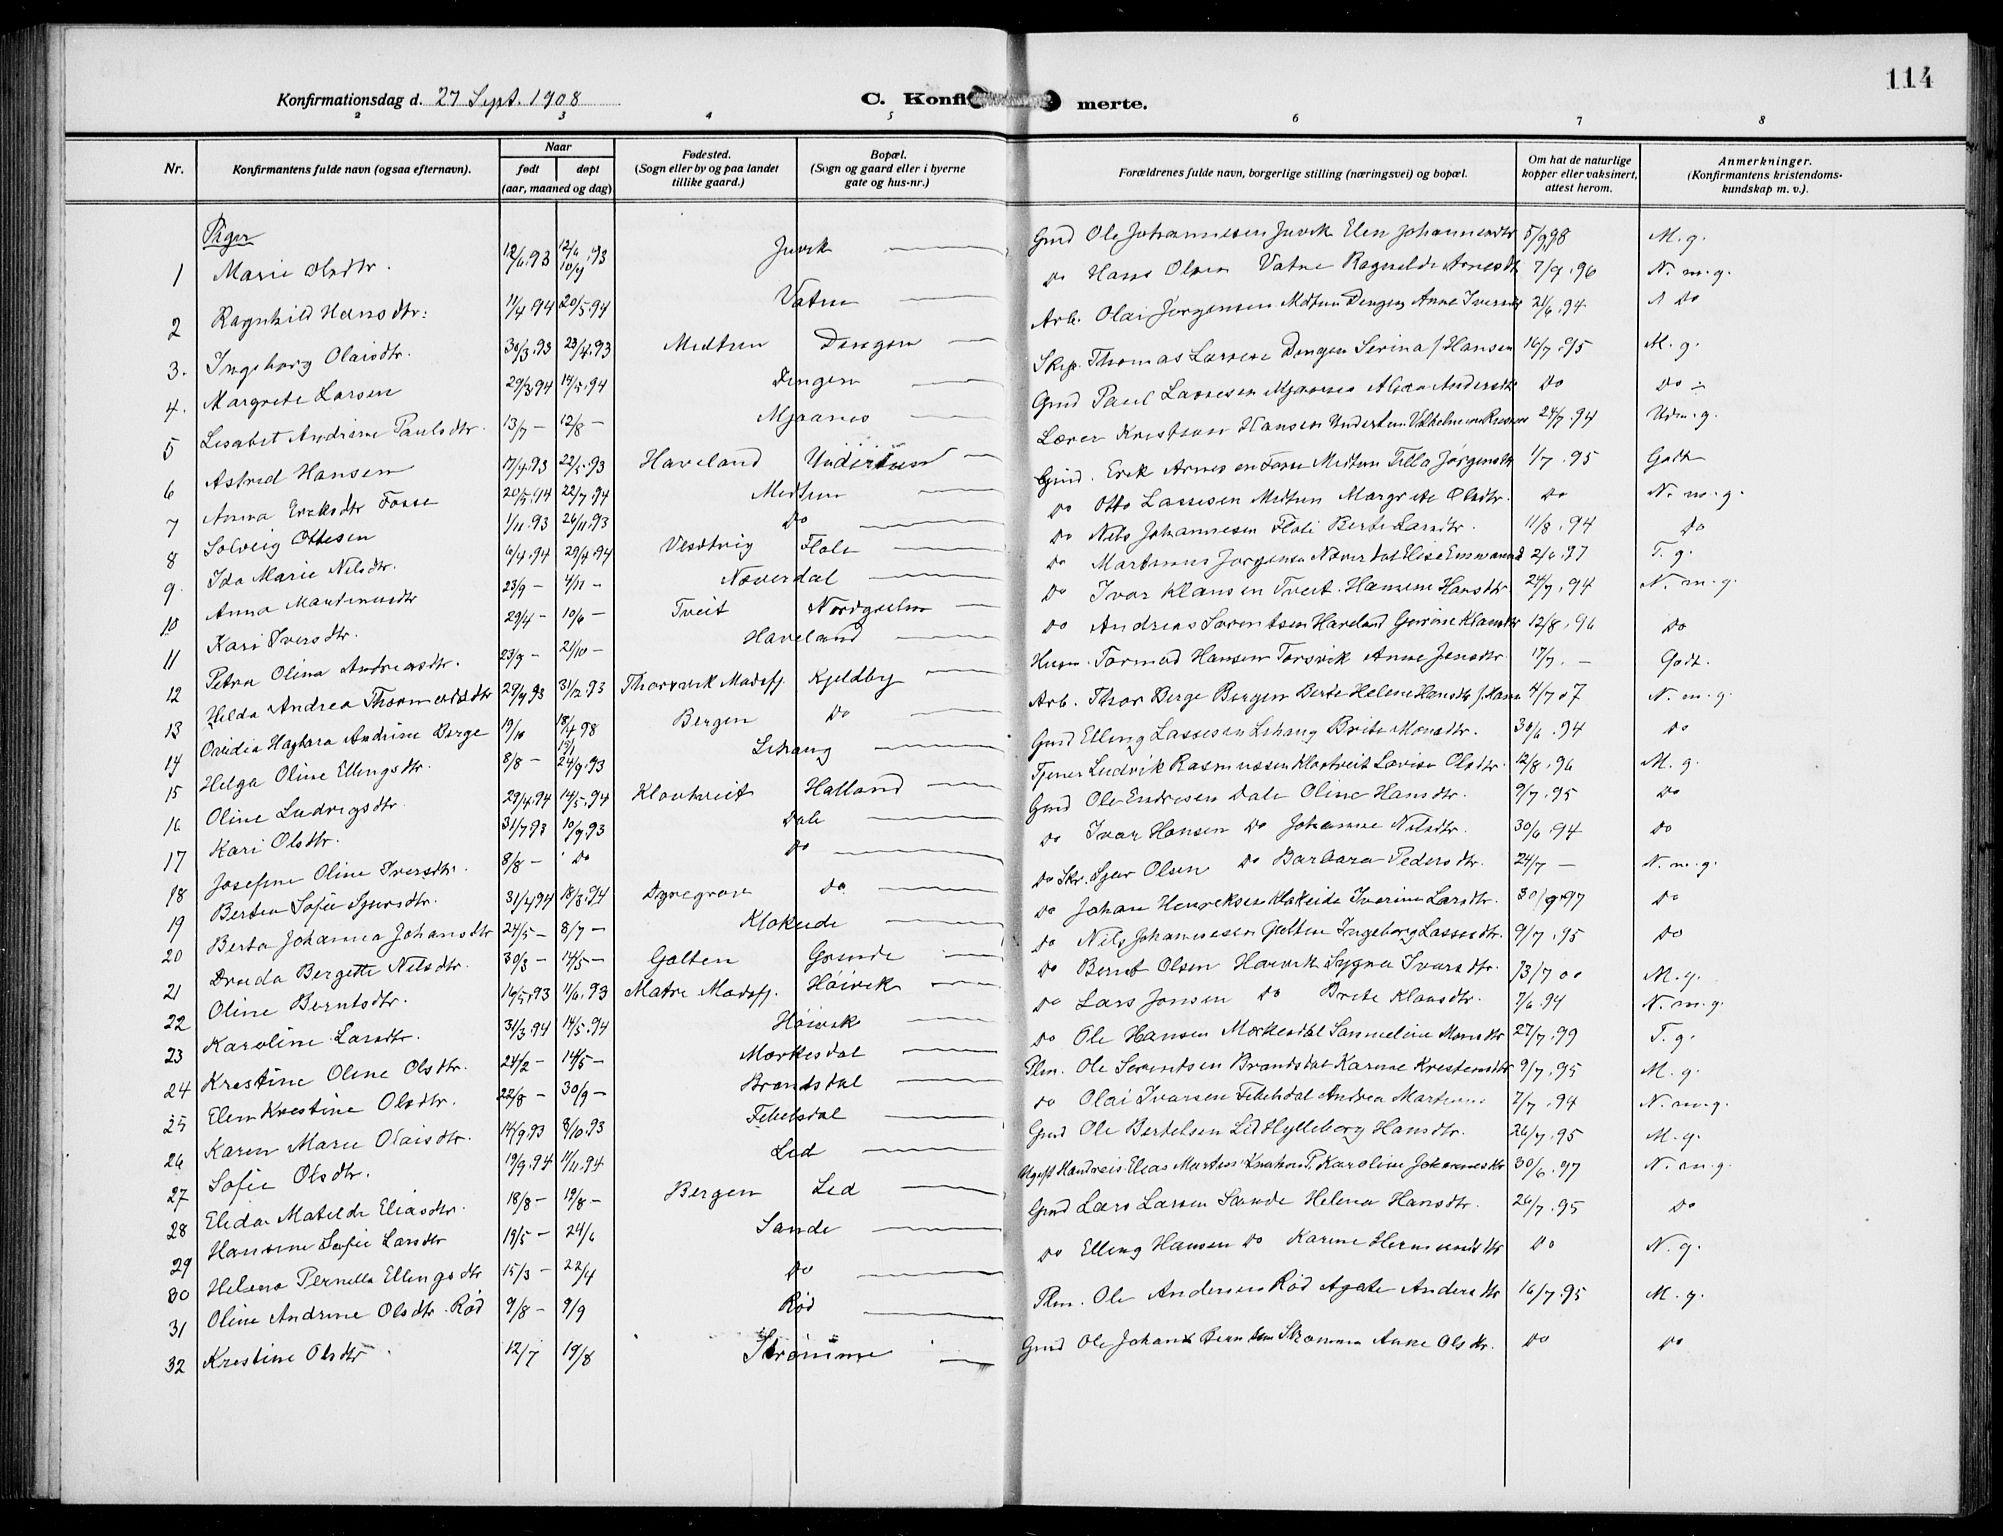 114
Konfirmationsdag d. 27 Sept. 1908
C. Konfi merte.
2 3 4 5 6 7 8
Nr. Konfirmantens fulde navn (ogsaa efternavn). Naar født døpt (aar, maaned og dag) Fødested. (Sogn eller by og paa landet tillike gaard.) Bopæl. (Sogn og gaard eller i byerne gate og hus-nr.) Forældrenes fulde navn, borgerlige stilling (næringsvei) og bopæl. Om hat de naturlige kopper eller vaksinert, attest herom. Anmerkninger. (Konfirmantens kristendoms-kundskap m. v.).
Piger
1 Marie Olsdtr. 12/6.93 Juvik Gmd Ole Johannesen Juvik Elen Johannesdtr 5/9 98 M. g.
2 Ragnhild Hansdtr: 11/4.94 20/5.94 Vatne Do Hans Olsen Vatne Ragnilde Arnesdt 7/9.96 N. m. g.
3. Ingeborg Olaisdtr. 30/3.93 23/4.93 Medtun Dengen Arb. Olai Jørgensen Medtun Dengen Anne Iversdt 21/6.94 Do
4. Margrete Larsen 29/3 94 14/5.94 Dengen Skip. Thomas Larsen Dengen Serina f Hansen 16/7.95 M. g.
5 Lisabet Andrine Paulsdtr. 13/7 – 12/8 – Mjaanes Gmd Paul Lassesen Mjaanes Andersdtr Do Do
6 Astrid Hansen 17/4.93 22/5.93 Haveland Undertun Lærer Kristian Hansen Undertun 24/7.94 Udm. g.
7 Anna Eriksdtr Fosse 20/5.94 22/7.94 Medtun Gmd. Erik Arnesen Fosse Medtun Jørgensdtr 1/7.95 Godt
8 Solveig Ottesen 1/11.93 26/11.93 Do Do Otto Lassesen Medtun Margrete Olsdtr. Do N. m. g.
9. Ida Marie Nilsdtr. 6/4.94 29/4.94 Vestvig Flole Do Nils Johannesen Flole Berte Larsdtr. 11/8.94 Do
10 Anna Martinusdtr 23/9 – 4/11 – Næverdal Do Martinus Jørgensen Næverdal Elise 2/6.97 T. g.
11 Kari Iversdtr. 29/4 – 10/6 – Tveit Nordgulen Do Ivar Klausen Tveit. Hansine Hansdtr 24/7.94 N. m. g.
12 Petra Olina Andreasdtr. 23/9 – 21/10 – Haveland Do Andreas Sørentsen Haveland Klausdtr 12/8.96 Do
13 Hilda Andrea Thormodsdtr 29/9 93 31/12.93 Thorsvik Masfj. Kjeldby Husm. Tormod Hansen Torsvik Anne Jensdtr. 17/7. – Godt.
14 Ovidia Hagbara Andrine Berge 19/10 18/4 98 Bergen Do Arb. Thor Berge Bergen Berte Helene Hansdtr 4/7 07 N. m. g.
15 Helga Oline Ellingsdtr. 8/8 – 24/9.93 Lihaug Gmd Elling Lassesen Lihaug Brite Monsdtr. 30/6.94 Do
16 Oline Ludvigsdtr. 29/4.94 14/5.94 Klovtveit Halland Tjener Ludvik Rasmussen Klovtveit Lovise Olsdtr. 12/8.96 M. g.
17 Kari Olsdtr. 31/7 93 10/9.93 Dale Gmd Ole Endresen Dale Oline Hansdtr. 9/7.95 Do
18 Josefine Oline Iversdtr. 8/8 – Do Do Do Ivar Hansen Do Johanne Nilsdtr. 30/6.94 Do
19 Bertha Sofie Sjursdtr. 31/4 94 18/8.94 Dyregrov Do Do Skr. Sjur Olsen Do Barbara Pedersdtr. 24/7 – N. m. g.
20 Berta Johanna Johansdtr 24/5 – 8/7 – Klokeide Do Johan Henriksen Klokeide Iverine Larsdtr. 30/9.97 Do
21 Druda Bergette Nilsdtr. 30/3 – 14/5 – Golten Grinde Do Nils Johannesen Golten Ingeborg Lassesdtr. 9/7.95 Do
22 Oline Berntsdtr. 16/5.93 11/6.93 Matre Masfj. Høivik Do Bernt Olsen Høivik Sygna Ivarsdtr. 13/7 00 M. g.
23 Karoline Larsdtr. 31/3.94 14/5.94 Høivik Do Lars Jonsen Do Brite Klausdtr. 7/6.94 N. m. g.
24 Kristine Oline Olsdtr. 24/2 – 14/5 – Mørkesdal Do Ole Hansen Mørkesdal Samueline Monsdtr 27/7.99 T. g.
25 Elen Kristine Olsdtr. 22/8 – 30/9 – Brandsdal Plm. Ole Sørentsen Brandsdal Karine Kristensdtr 9/7.95 M. g.
26 Karen Marie Olaisdtr. 14/9.93 8/10.93 Tillesdal Do Olai Ivarsen Andrea 7/7.94 N. m. g.
27 Sofie Olsdtr. 19/9.94 11/11.94 Lid Gmd Ole Bertelsen Lid Hylleborg Hansdtr. 26/7.95 M. g.
28 Elida Matilde Eliasdtr. 18/8 – 19/8 – Bergen Lid Ugift Elias Karoline Johannesdtr 30/6.97 N. m. g.
29 Hansine Sofie Larsdtr 19/5 – 24/6 Sande Gmd Lars Larsen Sande Helena Hansdtr. 26/7.95 Do
30 Helena Pernella Ellingsdtr 15/3 – 22/4 Do Do Elling Hansen Do Karine Hermundsdtr Do N. g.
31 Oline Andrine Olsdtr. Rød 9/8 – 9/9 Rød Plm. Ole Andersen Rød Agate Andersdtr 16/7.95 M. g.
32 Kristine Olsdtr 12/7 19/8 Strømme Gmd Ole Johan Strømme Anne Olsdtr. Do Do